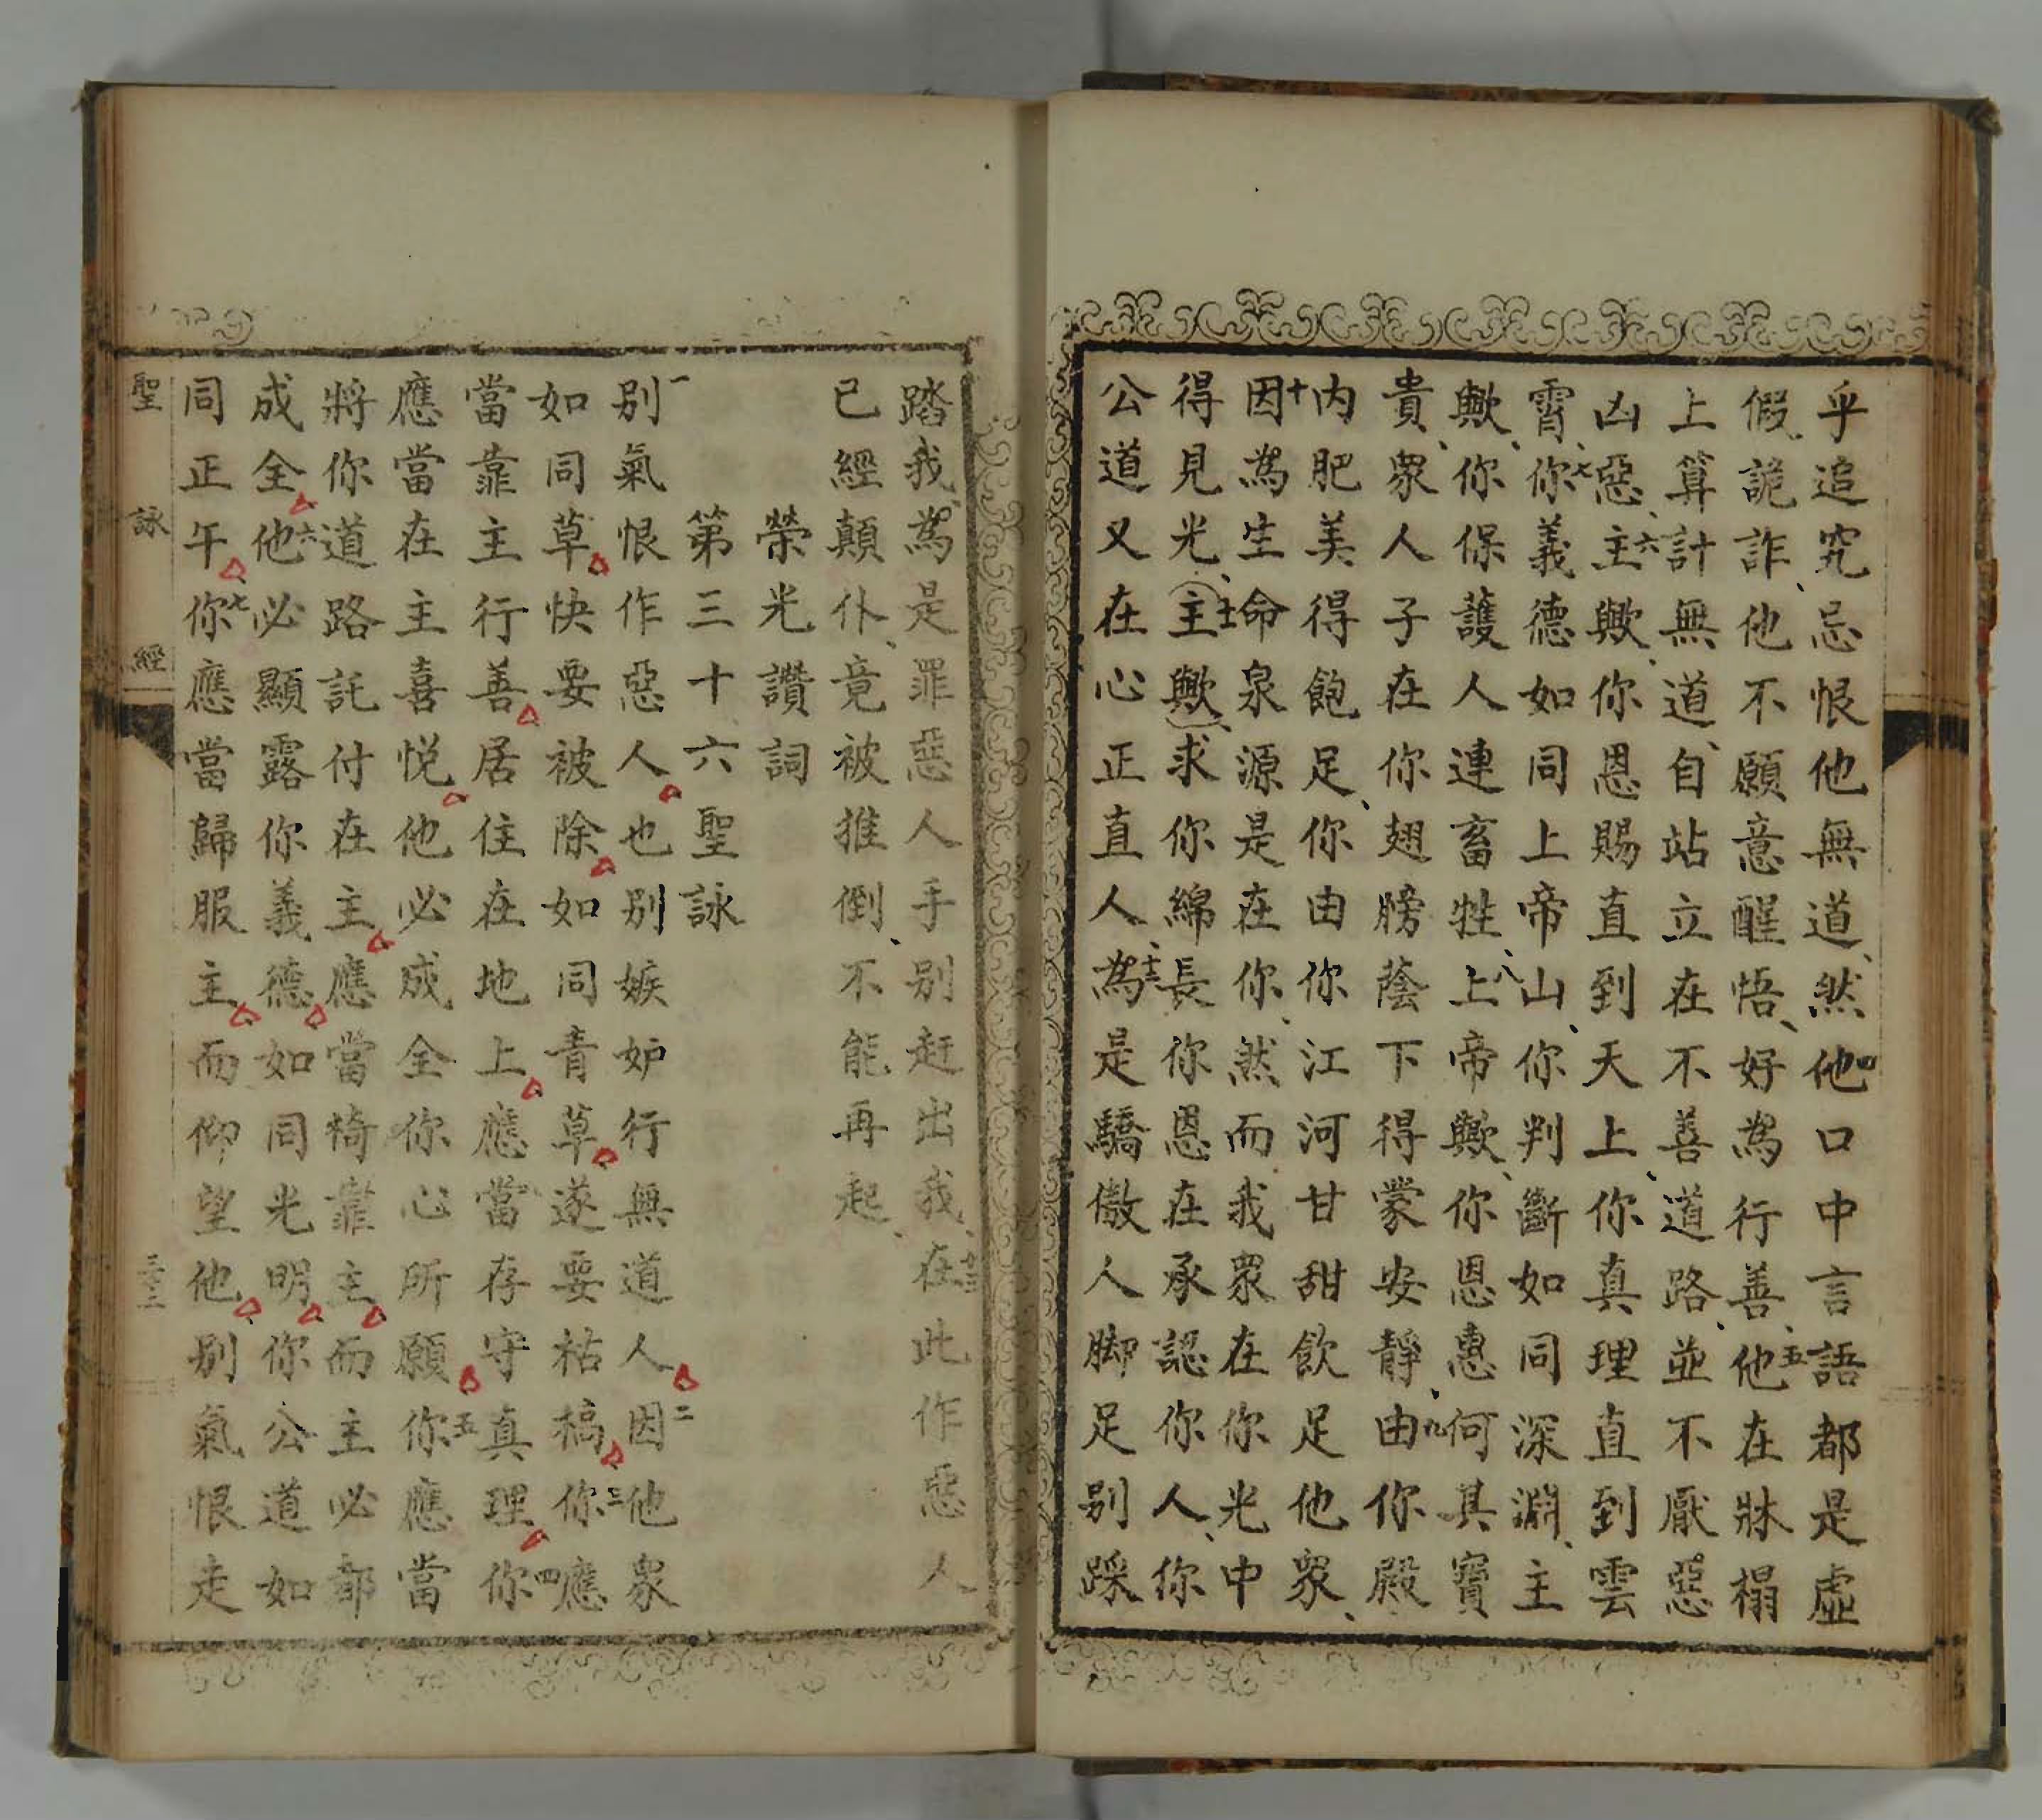 乎追究忌恨他無道、然他四口中言語都是虛
假、詭詐、他不願意醒悟、好為行善、他五在牀榻
上算計無道、自站立在不善道路、並不厭惡
凶惡、主六歟、你恩賜直到天上、你真理直到雲
霄、你七義德如同上帝山、你判斷如同深淵、主
歟、你保護人連畜牲、上八帝歟、你恩惠何其寶
貴、衆人子在你翅膀蔭下得蒙安靜、由九你殿
内肥美得飽足、你由你江河甘甜飲足他衆、
因十為生命泉源是在你、然而我衆在你光中
得見光、(主十一歟)、求你綿長你恩在承認你人、你
公道又在心正直人、為十二是驕傲人脚足别踩
踏我、為是罪惡人手别赶出我、在十三此作惡人、
已經顛仆、竟被推倒、不能再起、
榮光讚詞
第三十六聖詠
一别氣恨作惡人也别嫉妒行無道人因二他衆
如同草快要被除如同青草遂要枯槁你三應
當靠主行善居住在地上應當存守真理你四
應當在主喜悦他必成全你心所願你五應當
將你道路託付在主應當椅靠主而主必都
成全他六必顯露你義德如同光明你公道如
同正午你七應當歸服主而仰望他别氣恨走
聖詠經
三十三